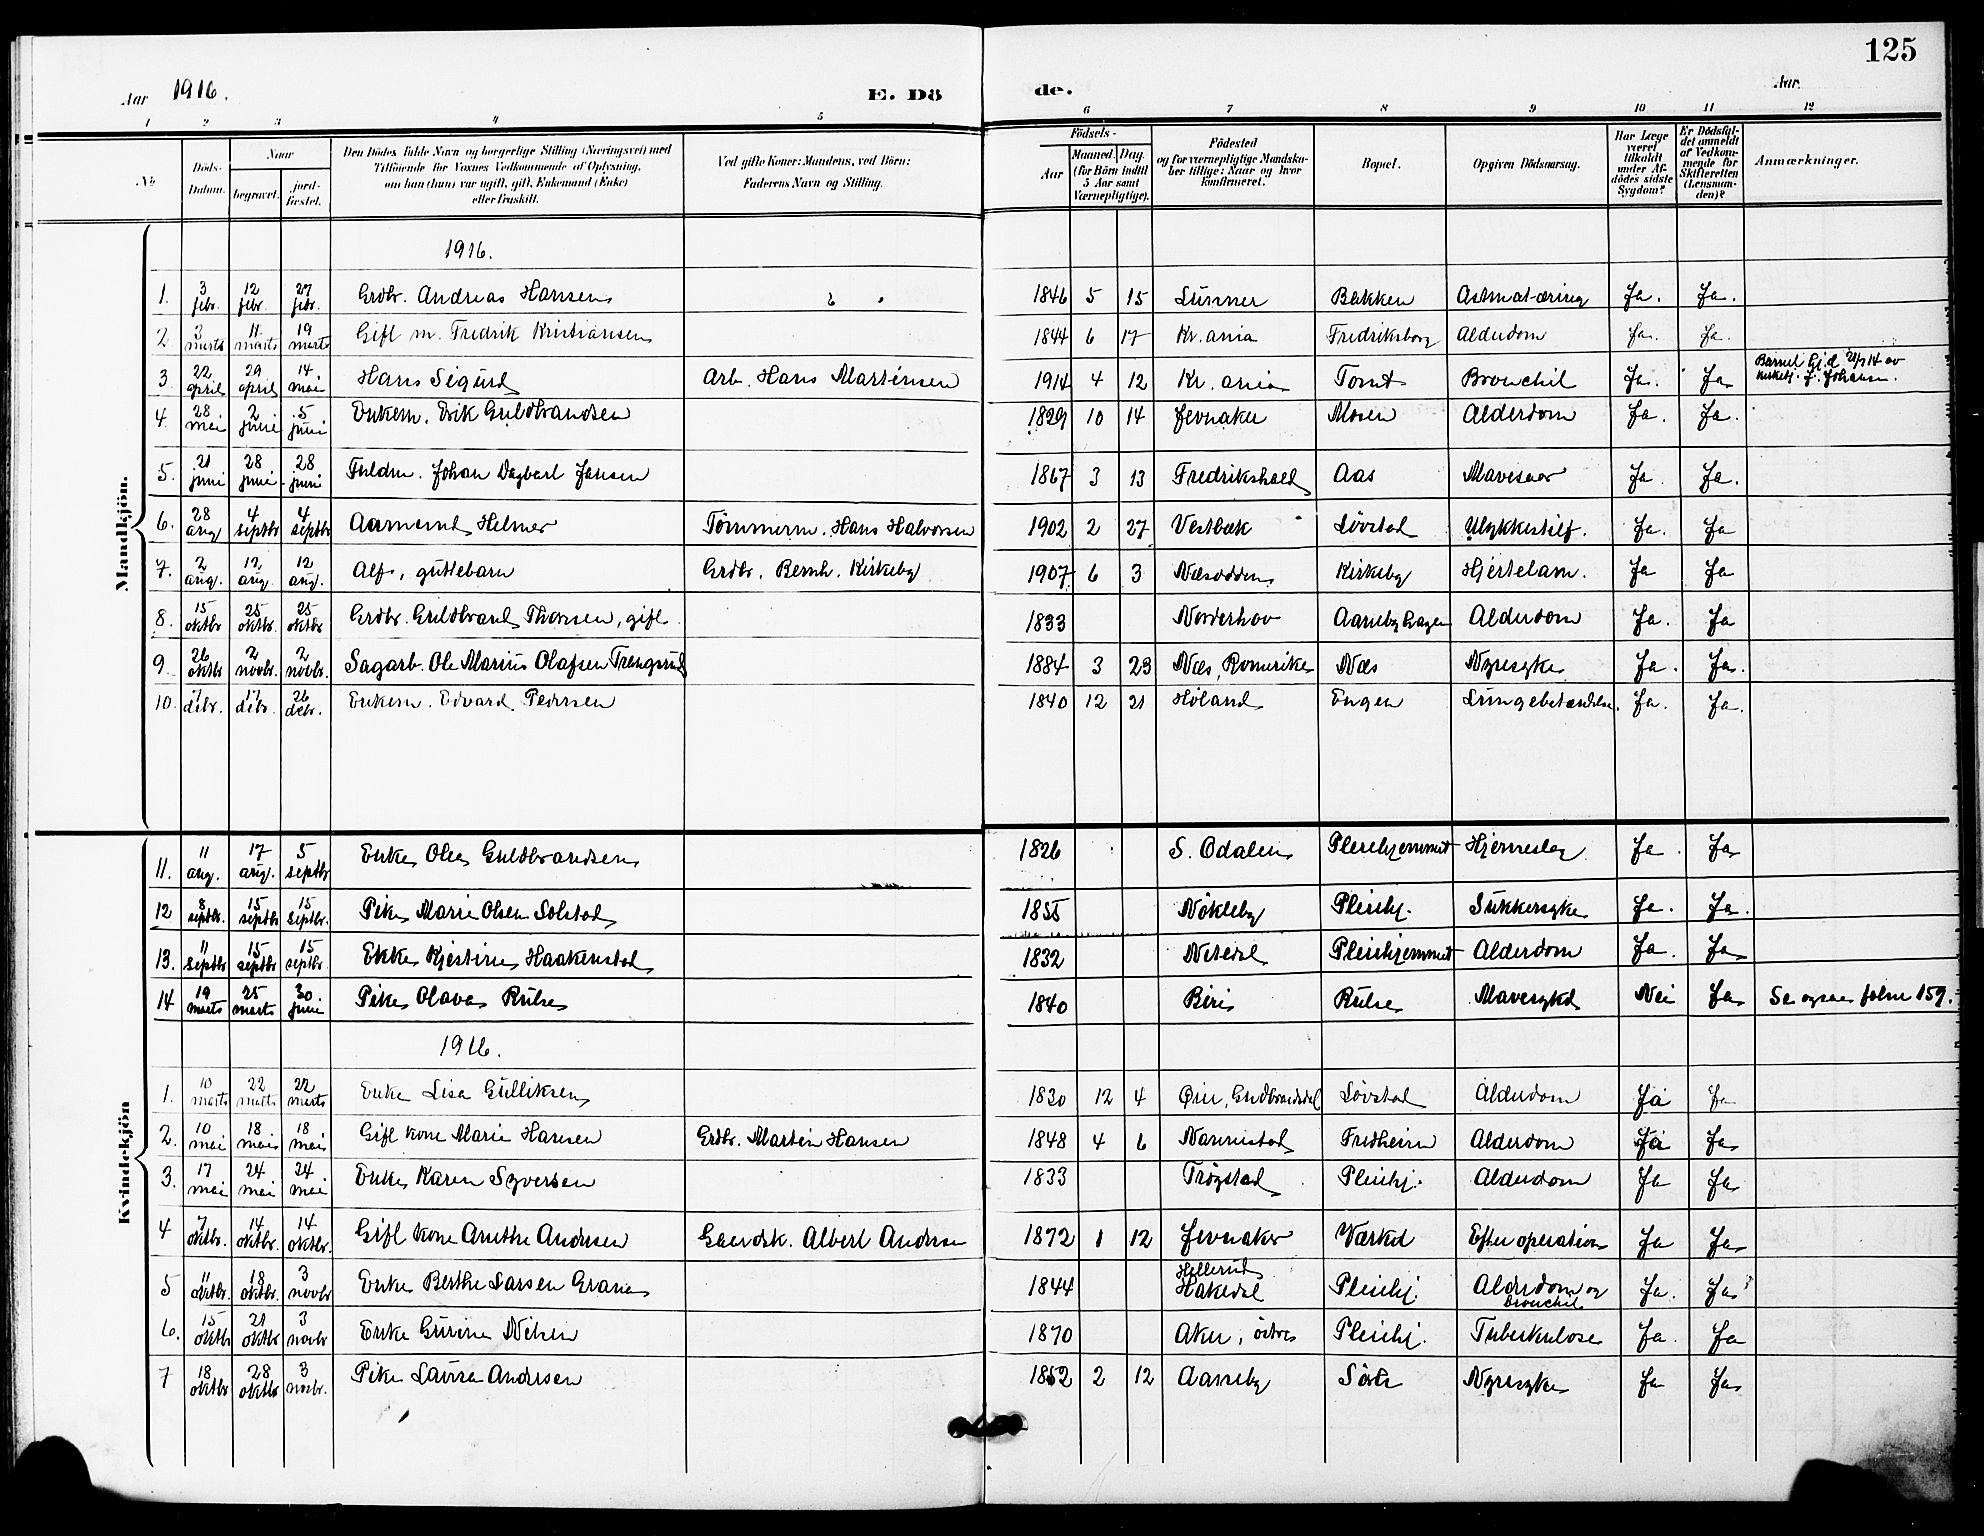 125
Aar 1916. E. Dö de. Aar.
1 2 3 4 5 6 7 8 9 10 11 12
No
Döds-Datum.
Naar
begravet.
jordfæstet.
Den Dödes fulde Navn og borgerlige Stilling (Næringsvei) med Tilföiende for Voxnes Vedkommende af Oplysning, om han (hun) var ugift, gift, Enkemand (Enke) eller fraskilt.
Ved gifte Koner: Mandens, ved Börn: Faderens Navn og Stilling.
Födsels-
Aar
Maaned. Dag.
(for Börn indtil 5 Aar samt Værnepligtige).
Födested og for værnepligtige Mandskaber tillige: Naar og hvor konfirmeret.
Bopæl.
Opgiven Dödsaarsag.
Har Læge været tilkaldt under Afdödes sidste Sygdom?
Er Dödsfaldet anmeldt af Vedkommende for Skifteretten (Lensmanden)?
Anmærkninger.
Mandkjön.
1916.
1. 3 febr. 12 febr. 27 febr. Grdbr. Andreas Hansen 1846 5 15 Lunner Bakken Ja. Ja.
2 3 marts 11 marts 19 marts Gift m. Fredrik Kristiansen 1844 6 17 Kr.ania Fredriksborg Alderdom Ja. Ja.
3. 22 april 29 april 14 mai Hans Sigurd Arb. Hans Martinsen 1914 4 12 Kr. ania Tomt Bronchit Ja. Ja Barnet hj.d. 21/5 14 av kirketj. J. Johansen.
4. 28 mai 2 juni 5 juni Enkem. Erik Guldbrandsen 1829 10 14 Jevnaker Mosen Alderdom Ja. Ja.
5. 21 juni 28 juni 28 juni Fuldm. Johan Dagbart Jansen 1867 3 13 Fredrikshald Aas Mavesaar Ja. Ja.
6. 28 aug 4 septbr 4 septbr Aamund Helmer Tømmerm. Hans Halvorsen 1902 2 27 Vestbæk Løvstad Ulykkestilf. Ja. Ja
7. 2 aug. 12 aug. 12 aug. Alf, guttebarn Grdbr. Bernh. Kirkeby 1907 6 3 Næsodden Kirkeby Hjertelam. Ja Ja
8. 15 oktbr 25 oktbr. 25 oktbr Grdbr. Guldbrand Thorsen, gift 1833 Norderhov Aaneby hagen Alderdom Ja. Ja
9. 26 oktbr 2 novbr. 2 novbr. Sagarb. Ole Marius Olafsen Trengsrud 1884 3 23 Næs, Romerike Næs Nyresyke Ja. Ja.
10. 7 debr. 17 debr. 26 debr. Enkem. Edvard Pedersen 1840 12 21 Høland Engen Lungebetændelse. Ja. Ja.
Kvindekjön
11. 11 aug. 17 aug. 5 septbr Enke Olea Guldbrandsen 1826 S. Odalen Pleiehjemmet Hjerneslag Ja. Ja
12 8 septbr. 15 septbr 15 septbr. Pike Marie Olsen Solstad 1855 Nøkleby Pleiehj. Sukkersyke Ja. Ja.
13. 11 septbr 15 septbr 15 septbr. Enke Kjestine Haakenstad 1832 Nitedal Pleiehjemmet Alderdom Ja. Ja
14 19 marts 25 marts 30 juni Pike Olava Rulse 1840 Biri Rulse Mavesykd Nei Ja Se ogsaa folne 159.
1916.
1. 10 marts 22 marts 22 marts Enke Lisa Gulliksen 1830 12 4 Øier, Gudbrandsdal Løvstad Alderdom Ja Ja
2. 10 mai 18 mai 18 mai Gift kone Marie Hansen Grdbr. Martin Hansen 1848 4 6 Nannestad Fredheim Alderdom Ja Ja
3. 17 mai 24 mai 24 mai Enke Karen Syversen 1833 Trøgstad Pleiehj. Alderdom Ja Ja
4 7 oktbr. 14 oktbr. 14 oktbr. Gift kone Anethe Andersen Gaardsk. Albert Andersen 1872 1 12 Jevnaker Værket Efter operation Ja Ja
5 11 oktbr. 18 oktbr. 3 novbr Enke Berthe Larsen Grane 1844 Hellerud Hakedal Pleiehj. Alderdom og bronchit Ja. Ja
6. 15 oktbr 21 oktbr 3 novbr. Enke Gurine Nilsen 1870 Aker, østre Pleiehj. Tuberkulose Ja. Ja
7 18 oktbr 28 oktbr 3 novbr. Pike Laura Andersen 1852 2 12 Aaneby Sørli Nyresyke Ja Ja